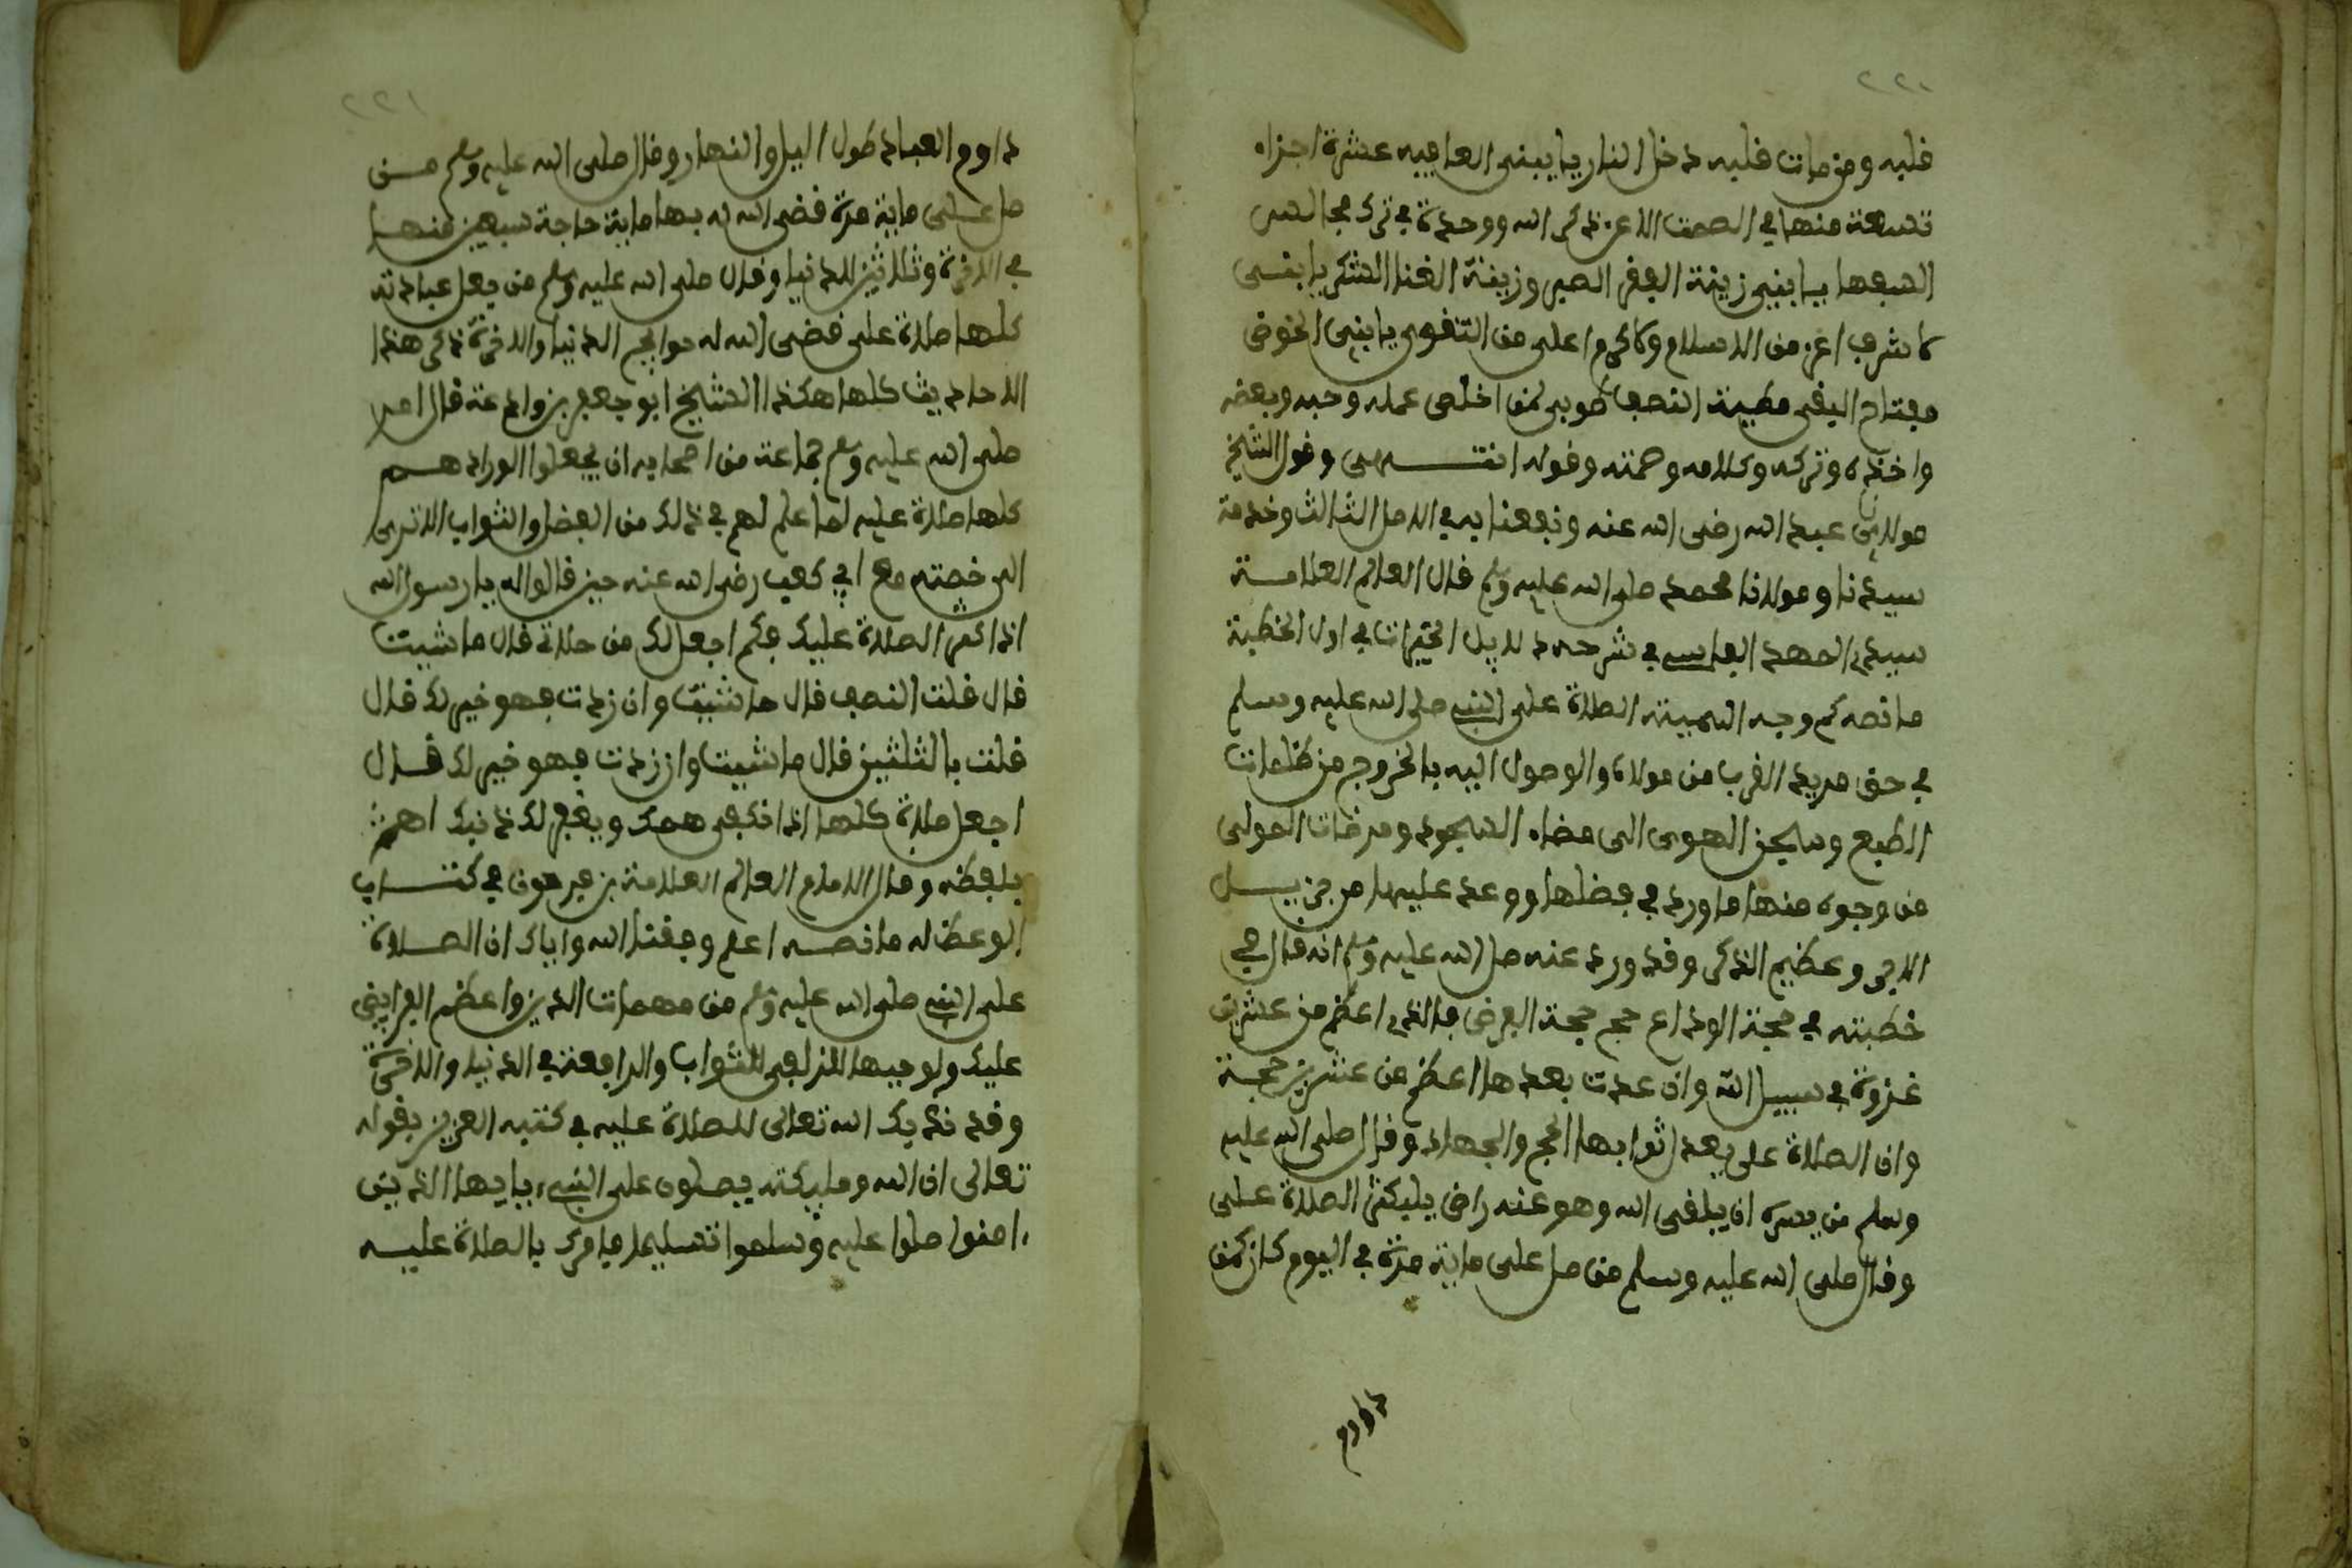 ٢٢٠
قلبه ومن مات قلبه دخل النار يا يبني العافيه عشرة اجزاء
تسعة منها في الصمت الا عن ذكر الله ووحدة في ترك مجالس
السبها يا بني زينة الفقر الصبر وزينة الغنا الشكر يا بني
لا شرف اعز من الاسلام ولا كرم اعلى من التقوى يا بني الخوض
مفتاح اليقى مطية النصب طوبى لمن اخلص عمله وحبه وبغضه
واخذه وتركه وكلامه وصمته وقوله انتهى وقول الشيخ
مولاي عبد الله رضي الله عنه ونفعنا به في الاصل الثالث وخدمة
سيدنا ومولانا محمد صلى الله عليه وسلم قال العالم العلامة
سيدي المهد الفاسي في شرحه دلايل الخيرات في اول الخطبة
ما نصه كم وجه اهمية الصلاة على النبي صلى الله عليه وسلم
في حق مريد القرب من مولاه والوصول اليه بالخروج من ظلمات
الطبع وسجن الهوى الى فضاء الشهود ومرضات المولى
من وجوه منها ما ورد في فضلها ووعد عليها من جزيل
الاجر وعظيم الذكر وقد ورد عنه صلى الله عليه وسلم انه قال في
خطبته في حجة الوداع حجم حجة الفرض فانها اعظم من عشرين
غزوة في سبيل الله وان عدت بعدها اعظم من عشرين حجة
وان الصلاة علي يعدل ثوابها الحج والجهاد وقال صلى الله عليه
وسلم من يسره ان يلقى الله وهو عنه راض فليكثر الصلاة علي
وقال صلى الله عليه وسلم من صل علي ماية مرة في اليوم كان كمن
داوم
٢٢١
داوم العبادة طول اليل والنهار وقال صلى الله عليه وسلم من
صل علي ماية مرة قضى الله له بها ماية حاجة سبعين منها
في الاخرة وثلاثين للدنيا وقال صلى الله عليه وسلم من جعل عبادته
كلها صلاة علي قضى الله له حوايج الدنيا والاخرة ذكر هذا
الاحاديث كلها هكذا الشيخ ابو جعفر بن وادعة قال امر
صلى الله عليه وسلم جماعة من اصحابه ان يجعلوا اورادهم
كلها صلاة عليه لما علم لهم في ذلك من الفضل والثواب الا ترى
الى قصته مع ابي كعب رضي الله عنه حين قالوا له يا رسول الله
اني اكثر الصلاة عليك فكم اجعل لك من صلاتي قال ما شيت
قال قلت النصف قال ما شيت وان زدت فهو خير لك قال
قلت بالثلثين قال ما شيت وان زدت فهو خير لك قال
اجعل صلاتي كلها اذا تكفى همك ويغفر لك ذنبك اهـ
بلفظه وقال الامام العالم العلامة بن فرحون في كتاب
الوعظ له ما نصه اعلم وفقنا الله واياك ان الصلاة
على النبي صلى الله عليه وسلم من مهمات الدين واعظم الفرايض
عليك ولوجبها المزلفى للثواب والرافعة في الدنيا والاخرة
وقد ندبك الله تعالى للصلاة عليه في كتبه العزيز بقوله
تعالى ان الله ومليكته يصلون على النبيء يايها الذين
ءامنوا صلوا عليه وسلموا تسليما فامرك بالصلاة عليه